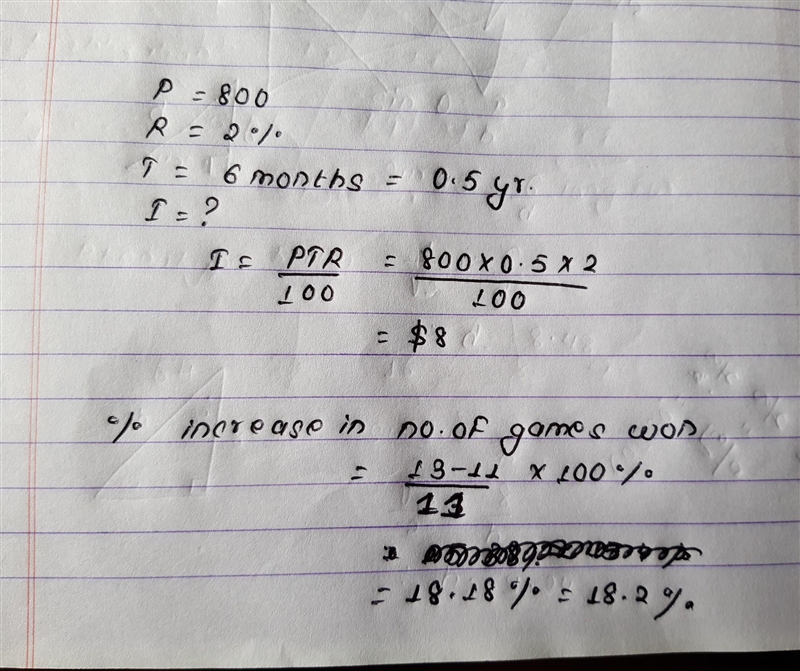 P = 800
R = 2%
T = 6 months = 0.5 yr.
I = ?
I = PTR/100 = 800 x 0.5 x 2/100
= $8
% increase in no. of games won
= 13-11/11 x 100%
= 18.18% = 18.2%